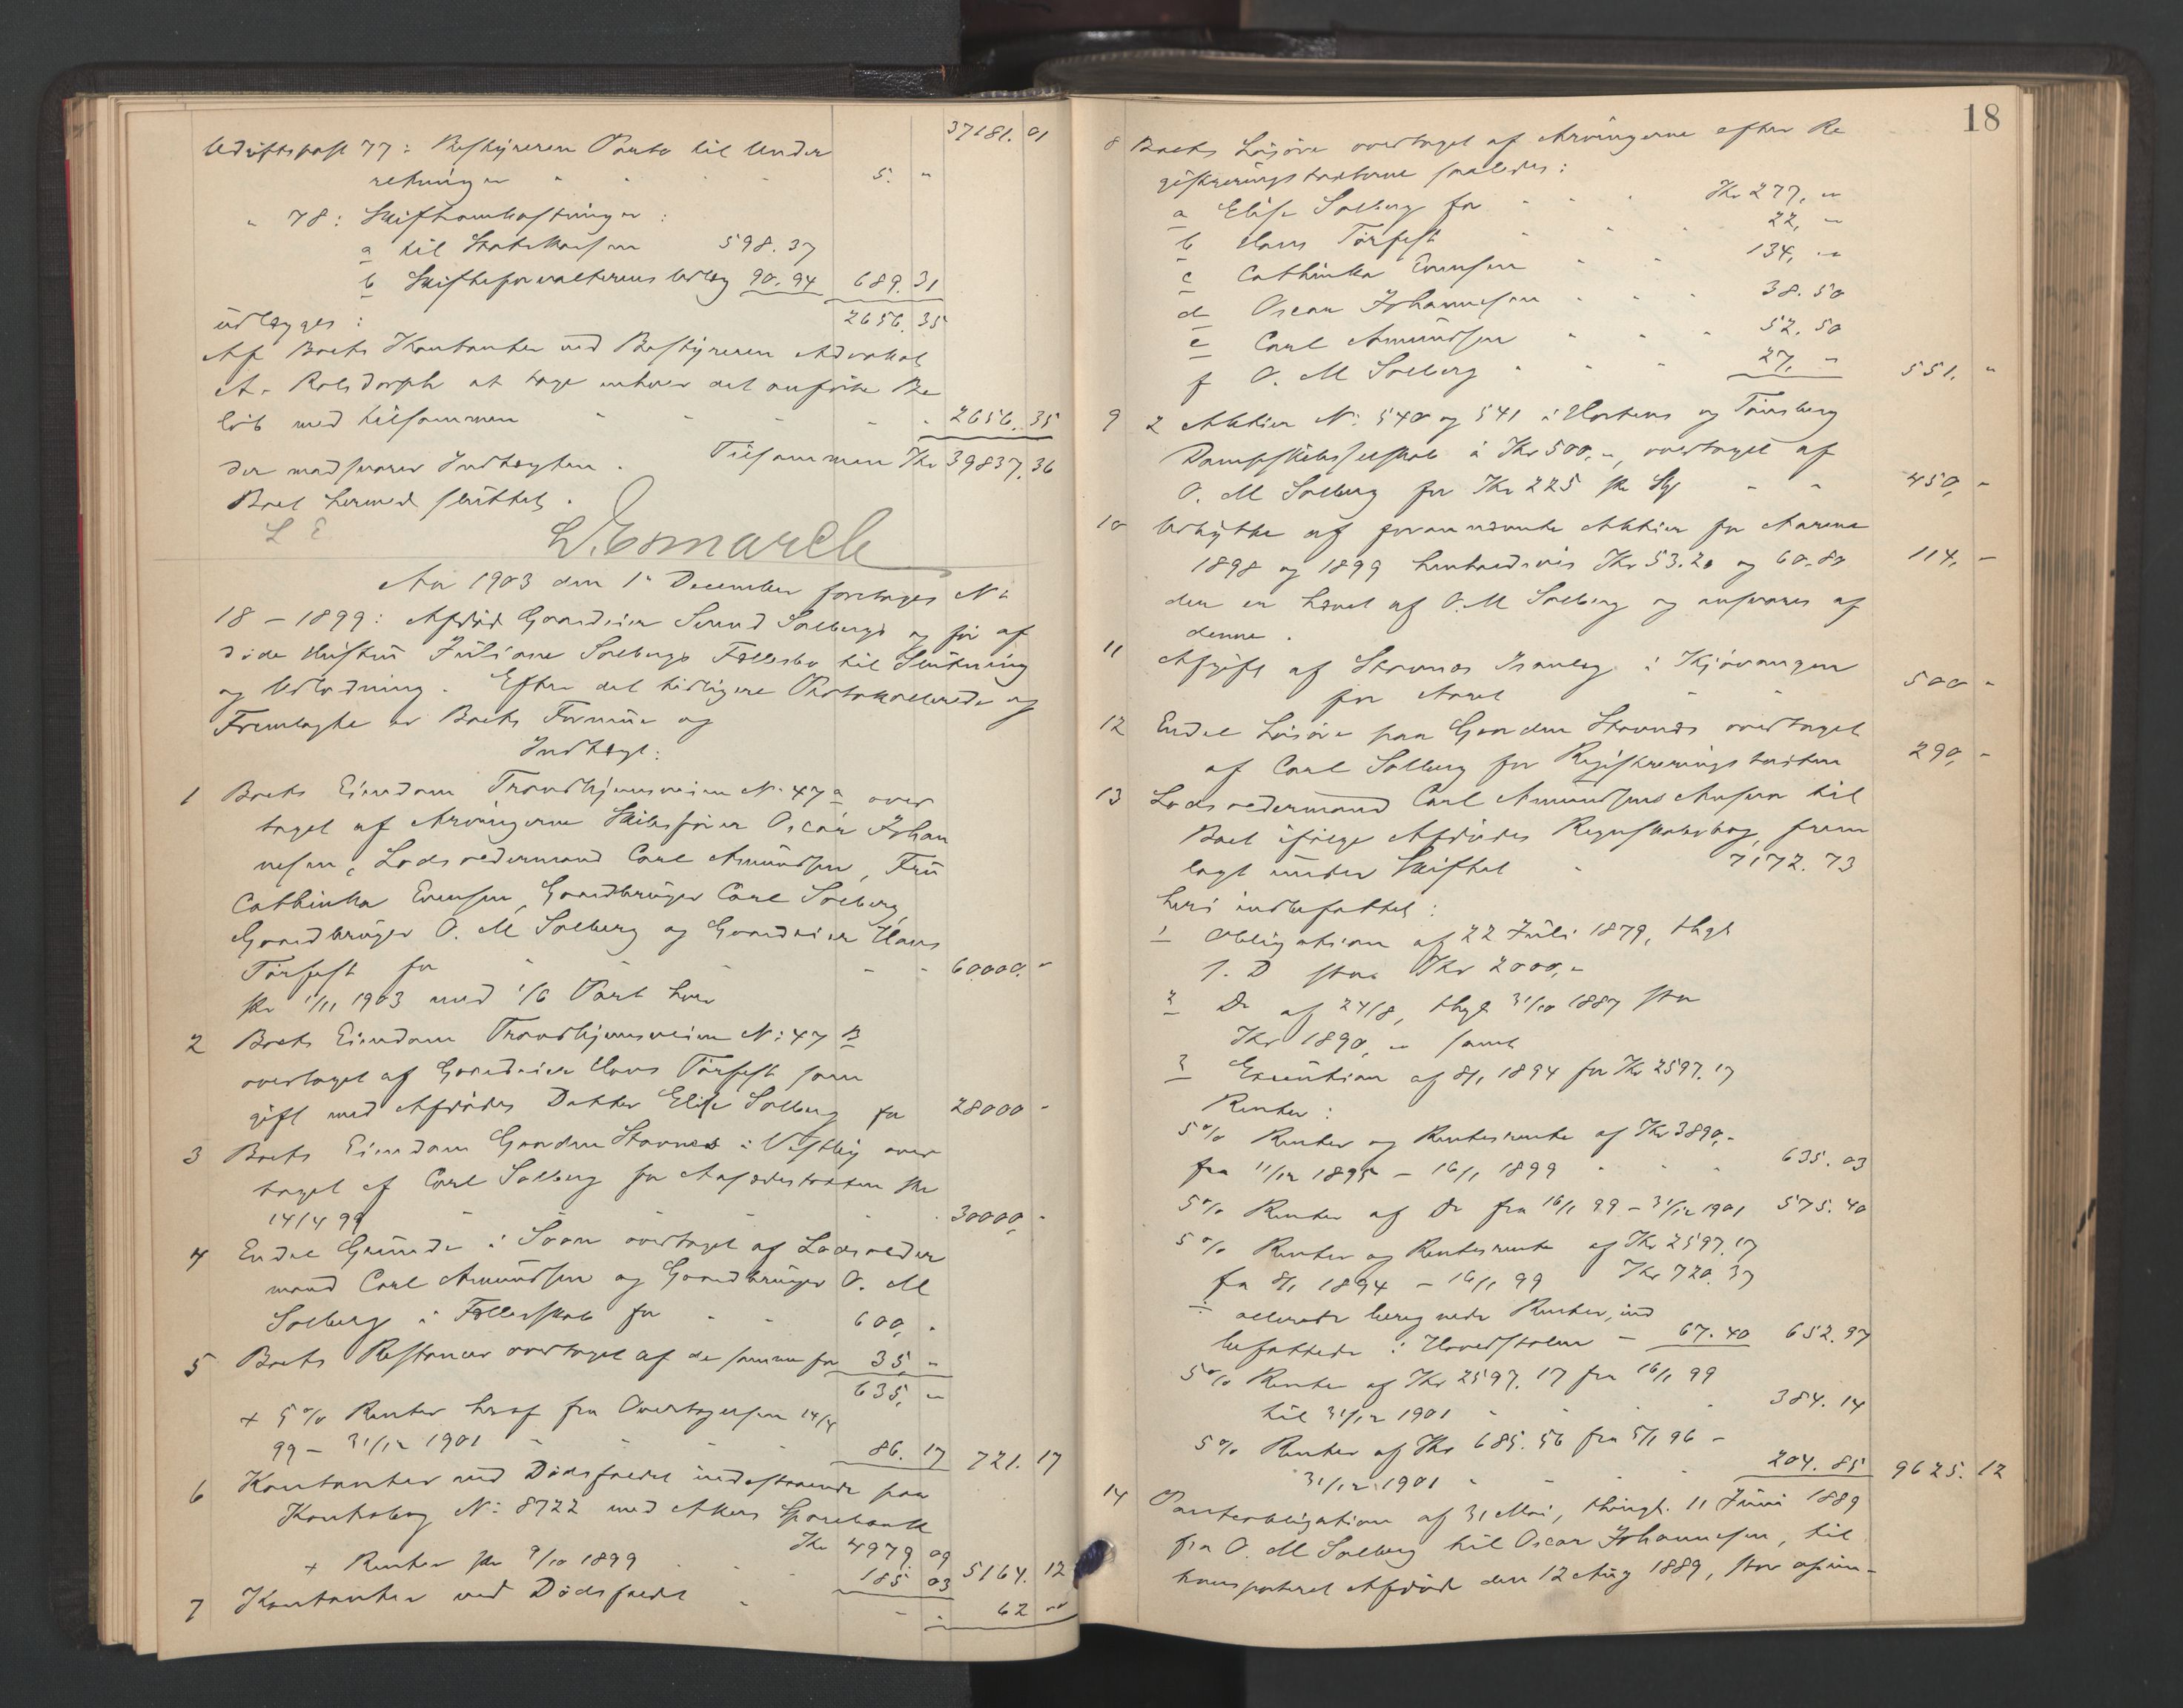 37181. 01
Udgiftspost 77: Bestyreren Porto til Under
retninger " " " " 5. "
" 78: Skifteomkostninger:
a til Statskassen 598. 37
b Skifteforvalterens Udlæg 90. 94 689. 31
udlægges: 2656. 35
Af Boets Kontanter ved Bestyreren Advokat
A. Rolsdorph at tage enhver det anførte Be
løb med tilsammen " " " " 2656. 35
der modsvarer Indtægten. Tilsammen Kr 39837. 36
Boet hermed sluttet.
L E
L. Esmarch
Aar 1903 den 1' December foretages N:
18 – 1899: Afdød Gaardeier Svend Solbergs og før af
døde Hustru Juliane Solbergs Fællesbo til Slutning
og Udlodning. Efter det tidligere Protokollerede og
Fremlagte er Boets Formue og
Indtægt:
1 Boets Eiendom Trondhjemsveien N: 47 a over
taget af Arvingerne Skibsfører Oscar Johan
nesen, Lodsoldermand Carl Amundsen, Fru
Cathinka Evensen, Gaardbruger Carl Solberg,
Gaardbruger O. M Solberg og Gaardeier Hans
Torfest for " " " " " 60000. "
pr 1/11 1903 med 1/6 Part hver
2 Boets Eiendom Trondhjemsveien N: 47 B
overtaget af Gaardeier Hans Torfest som
gift med Afdødes Datter Elise Solberg for 28000 "
3 Boets Eiendom Gaarden Stavnes i Vestby over
taget af Carl Solberg for Aasædestaxten pr
14/4 99 " " " " 30000, "
4 Endel Grunde i Soon overtaget af Lodsolder
mand Carl Amundsen og Gaardbruger O. M
Solberg i Fællesskab for " " 600, "
5 Boets Restancer overtaget af de samme for 35, "
635, "
+ 5 % Renter heraf fra Overtagelsen 14/4
99 – 31/12 1901 " " " " 86. 17 721. 17
6 Kontanter ved Dødsfaldet indestaaende paa
Kontrabog N: 8722 med Akers Sparebank
Kr 4979. 09
+ Renter pr 9/10 1899 " " 185 03 5164. 12
7 Kontanter ved Dødsfaldet " " " 62 "
18
8 Boets Løsøre overtaget af Arvingerne efter Re
gistreringstaxterne saaledes:
a Elise Solberg for " " " Kr 277, "
b Hans Torfest " " " 22, "
c Cathinka Evensen " " 134, "
d Oscar Johannesen " " " 38. 50
e Carl Amundsen " " " 52. 50
f O. M Solberg " " " 27, " 551. "
9 2 Aktier N: 540 og 541 i Hortens og Tønsberg
Dampskibsselskab à Kr 500, ", overtaget af
O. M Solberg for Kr 225 pr Stk " " 450, "
10 Udbytte af forannævnte Aktier for Aarene
1898 og 1899 henholdsvis Kr 53. 20 og 60. 80 114, –
der er hævet af O. M Solberg og ansvares af
denne.
11 Afgift af Stavnes Isanlæg i Kjøvangen
for Aaret " " 500 "
12 Endel Løsøre paa Gaarden Stavnes overtaget
af Carl Solberg for Registreringstaxten 290, "
13 Lodsoldermand Carl Amundsens Ansvar til
Boet ifølge Afdødes Regnskabsbog, frem
lagt under Skiftet " 7172. 73
heri indbefattet:
1 Obligation af 22 Juli 1879, thgl
s. D stor Kr 2000, "
2 Do af 24/8, thgl 31/10 1887 stor
Kr 1890, " samt
3 Execution af 8/1 1894 for Kr 2597. 17
Renter:
5 % Renter og Rentesrente af Kr 3890, "
fra 11/12 1895 – 16/1 1899 " " " 635. 03
5 % Renter af Do fra 16/1 99 – 31/12 1901 575. 40
5 % Renter og Rentesrente af Kr 2597. 17
fra 8/1 1894 – 16/1 99 Kr 720. 37
÷ allerede beregnede Renter, ind
befattede i Hovedstolen – 67. 40 652. 97
5 % Rente af Kr 2597. 17 fra 16/1 99
til 31/12 1901 " " " 384. 14
5 % Renter af Kr 685. 56 fra 5/1 96 –
31/12 1901 " " " 204. 85 9625. 12
14 Panteobligation af 31 Mai, thingl. 11 Juni 1889
fra O. M Solberg til Oscar Johannesen, til
transporteret Afdøde den 12 Aug 1889, stor opin-